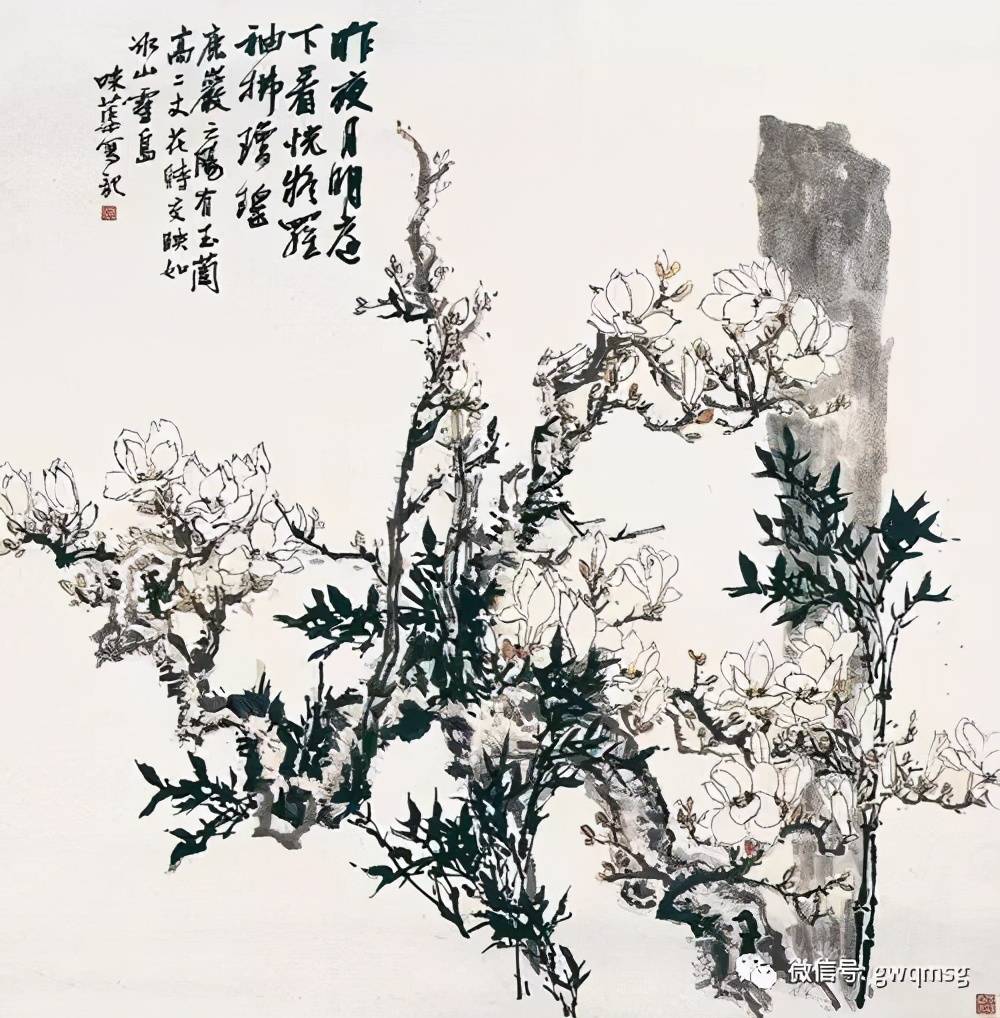 昨夜月明庭
下看恍疑羅
袖拂瓊瑤
鹿巖之陽有玉蘭
高二丈花時交映如
冰山雪島
味蕖寫記
微信号: gwqmsg